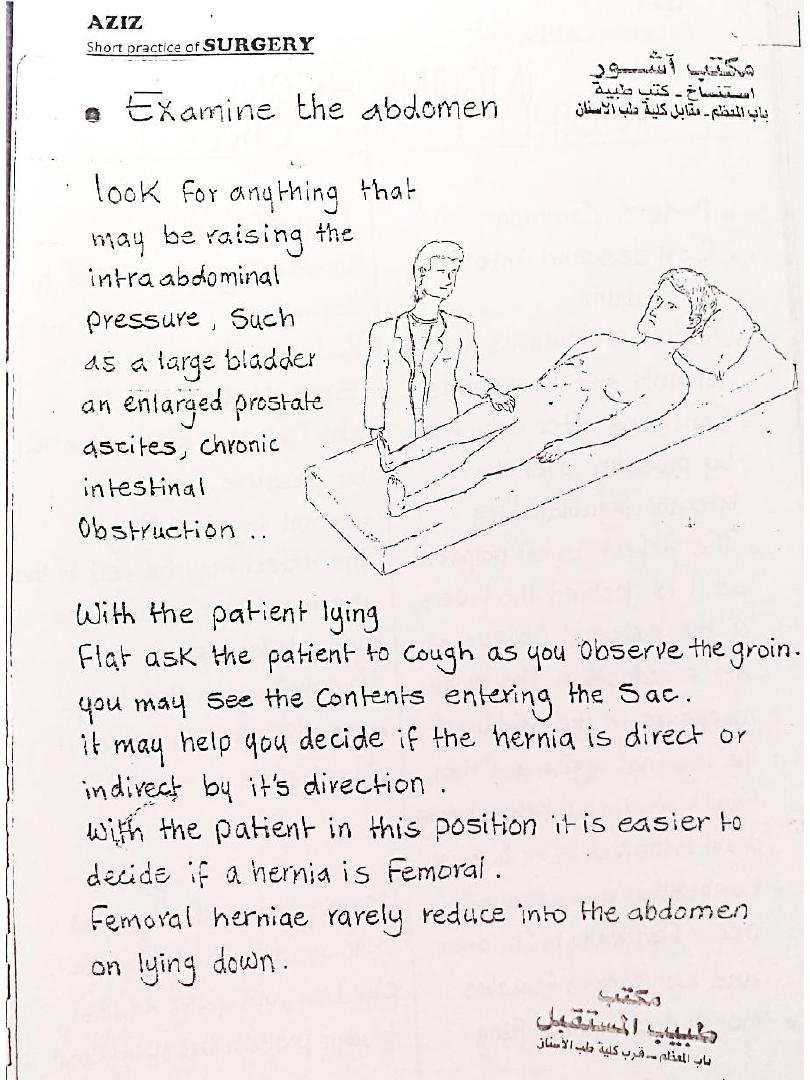 AZIZ
Short practice of SURGERY
مكتب آشور
استنساخ - كتب طبية
باب المعظم - مقابل كلية طب الأسنان
• Examine the abdomen
look for anything that
may be raising the
intra abdominal
pressure, such
as a large bladder
an enlarged prostate
ascites, chronic
intestinal
Obstruction ..
With the patient lying
Flat ask the patient to cough as you observe the groin.
you may see the contents entering the sac.
it may help you decide if the hernia is direct or
indirect by it's direction.
With the patient in this position it is easier to
decide if a hernia is Femoral.
Femoral herniae rarely reduce into the abdomen
on lying down.
مكتب
طبيب المستقبل
باب المعظم - قرب كلية طب الأسنان